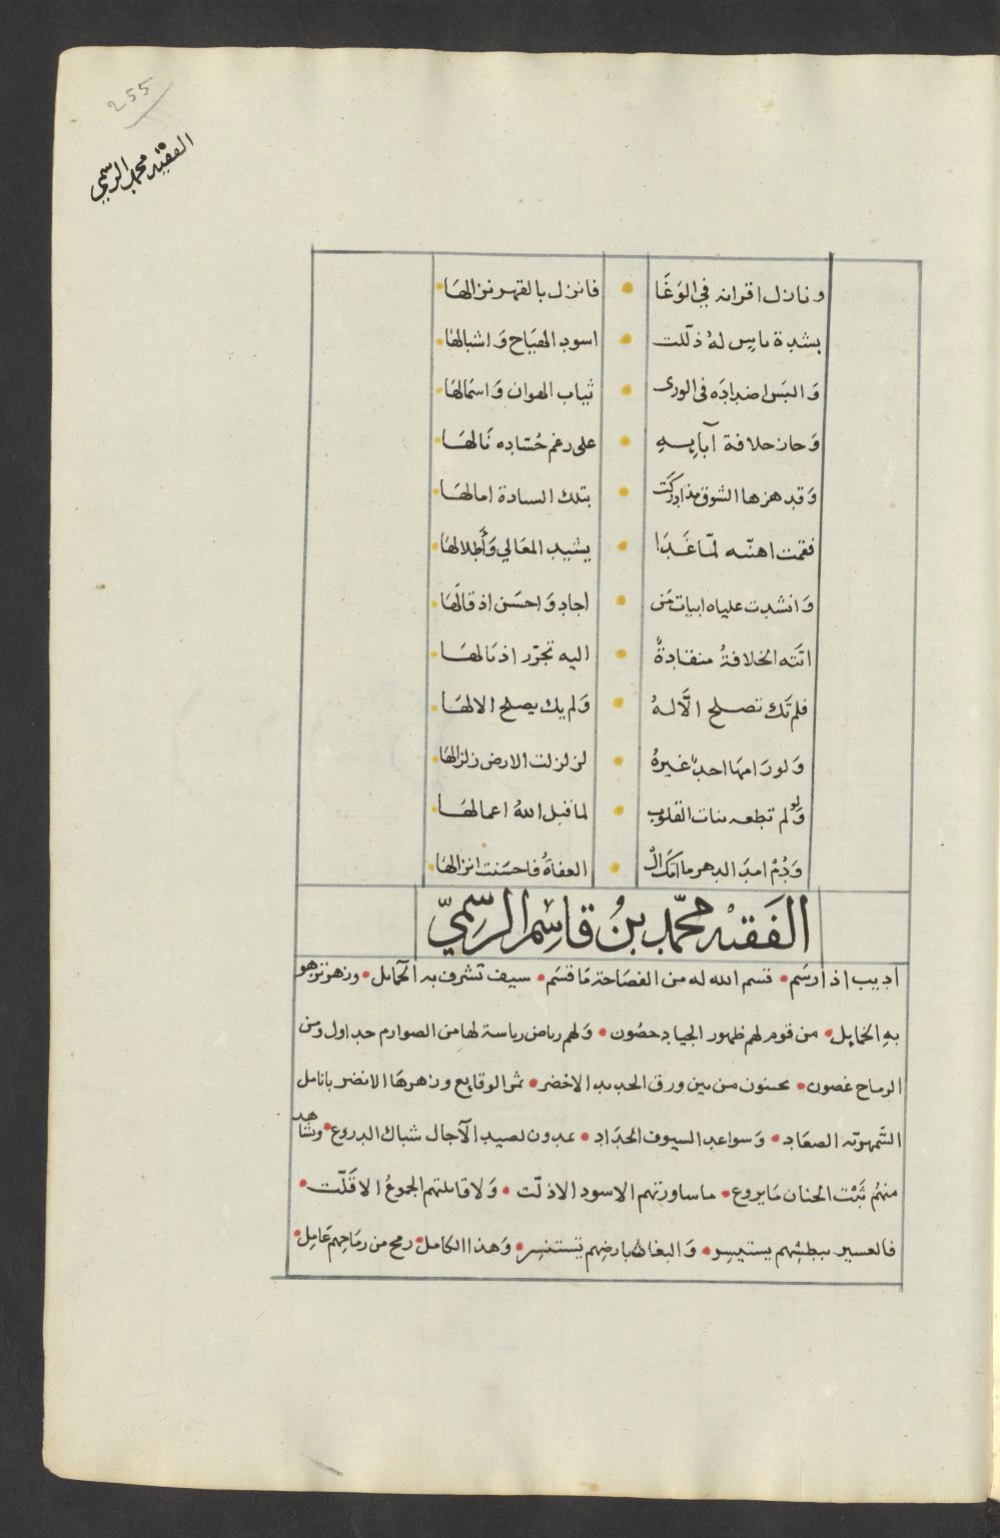 255
الفقيه محمد الرسمي
ونازل اقرانه في الوَغَا • فانزل بالقهر نزالهَا •
بشدة باس لهُ ذلّلت • اسود الهيَاح وَاشبالهَا •
وَالبسَ اضدادَه فى الورى • ثياب الهوان وَاسمَالهَا •
وَحاز خلافة آبايِهِ • على رغم حُسّادِه نَالهَا •
وَقد هزها الشوق مذ ادركَت • بتلك السادة امالهَا •
فقمت اهنّيه لمّا غَدَا • يشيد المعَالي وَأطلالهَا •
وَانشدت علياه ابيات مَن • اجاد وَاحسَن اذ قالهَا •
اتَته الخلافةُ منقادةً • اليه تجرّر اذيَالهَا •
فلم تَك تصلح الَّا لهُ • وَلم يك يصلح الا لهَا •
وَلو رَامهَا احدٌ غيرهُ • لزلزلت الارض زلزالهَا •
وَلو لم تطعه بنات القلوب • لما قبل اللهُ اعمالهَا •
وَدُمْ امدَ الدهر ما امّكَ الْ • العفاةُ فاحسَنت انزالهَا •
الفَقيْه محمّد بنُ قاسِم الرسِميّ
اديب اذا رسَم • قسم الله له من الفصَاحة مَا قسَم • سيف تشرف به الحَمَايل • وزهر تزهو
بهِ الخمايل • من قوم لهم ظهور الجياد حصُون • وَلهم رياض رياسة لها من الصوارم جداول ومن
الرماح غصون • يجنون من بين ورق الحديد الاخضر • ثمر الوقايع وزهرهَا الانضر بانامل
السّمهريّه الصعَاد • وَسواعد السيوف الحدَاد • يمدون لصيد الآجال شباك الدروع • وشاهد
منهُم ثَبْت الجنان مَا يروع • ما ساورتهم الاسود الا ذلّت • وَلا قابلتهم الجموعُ الا قَلّت •
فالعسير ببطشِهم يستيسِر • وَالبغاث بارضِهم يَستنسِر • وَهذا الكامل • رمح من رمَاحِهم عَامِل •